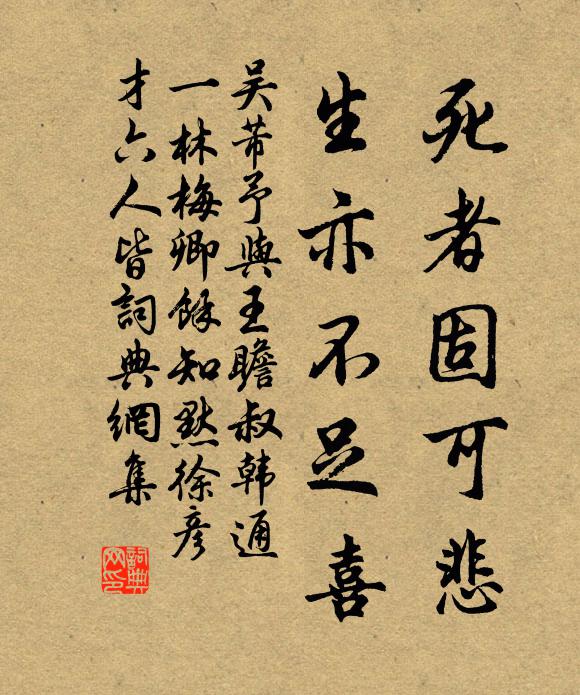 死者固可悲
生亦不足喜
吴芾予與王瞻叔韩通
一林梅卿餘知默徐彦
才六人皆詞典網集
詞典网印